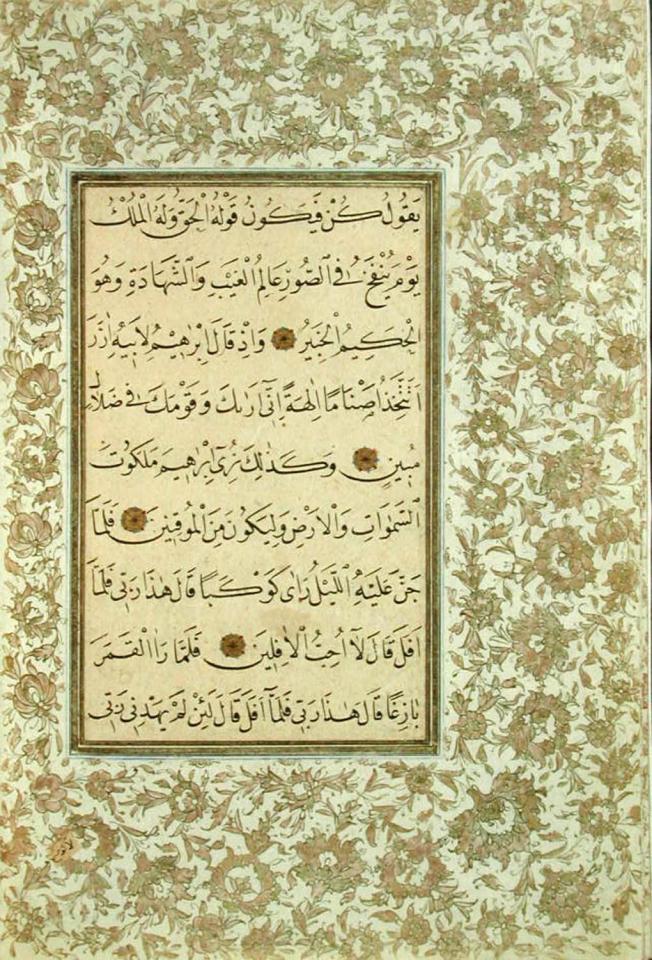 يَقُولُ كُنْ فَيَكُونُ قَوْلُهُ الْحَقُّ وَلَهُ الْمُلْكُ
يَوْمَ يُنْفَخُ فِي الصُّورِ عَالِمُ الْغَيْبِ وَالشَّهَادَةِ وَهُوَ
الْحَكِيمُ الْخَبِيرُ وَاِذْ قَالَ اِبْرٰهِيمُ لِاَبِيهِ اٰزَرَ
اَتَتَّخِذُ اَصْنَامًا اٰلِهَةً اِنِّي اَرٰيكَ وَقَوْمَكَ فِي ضَلَالٍ
مُبِينٍ وَكَذٰلِكَ نُرِي اِبْرٰهِيمَ مَلَكُوتَ
السَّمٰوَاتِ وَالْاَرْضِ وَلِيَكُونَ مِنَ الْمُوقِنِينَ فَلَمَّا
جَنَّ عَلَيْهِ الَّيْلُ رَاٰى كَوْكَبًا قَالَ هٰذَا رَبِّي فَلَمَّا
اَفَلَ قَالَ لَا اُحِبُّ الْاٰفِلِينَ فَلَمَّا رَاَ الْقَمَرَ
بَازِغًا قَالَ هٰذَا رَبِّي فَلَمَّا اَفَلَ قَالَ لَئِنْ لَمْ يَهْدِنِي رَبِّي